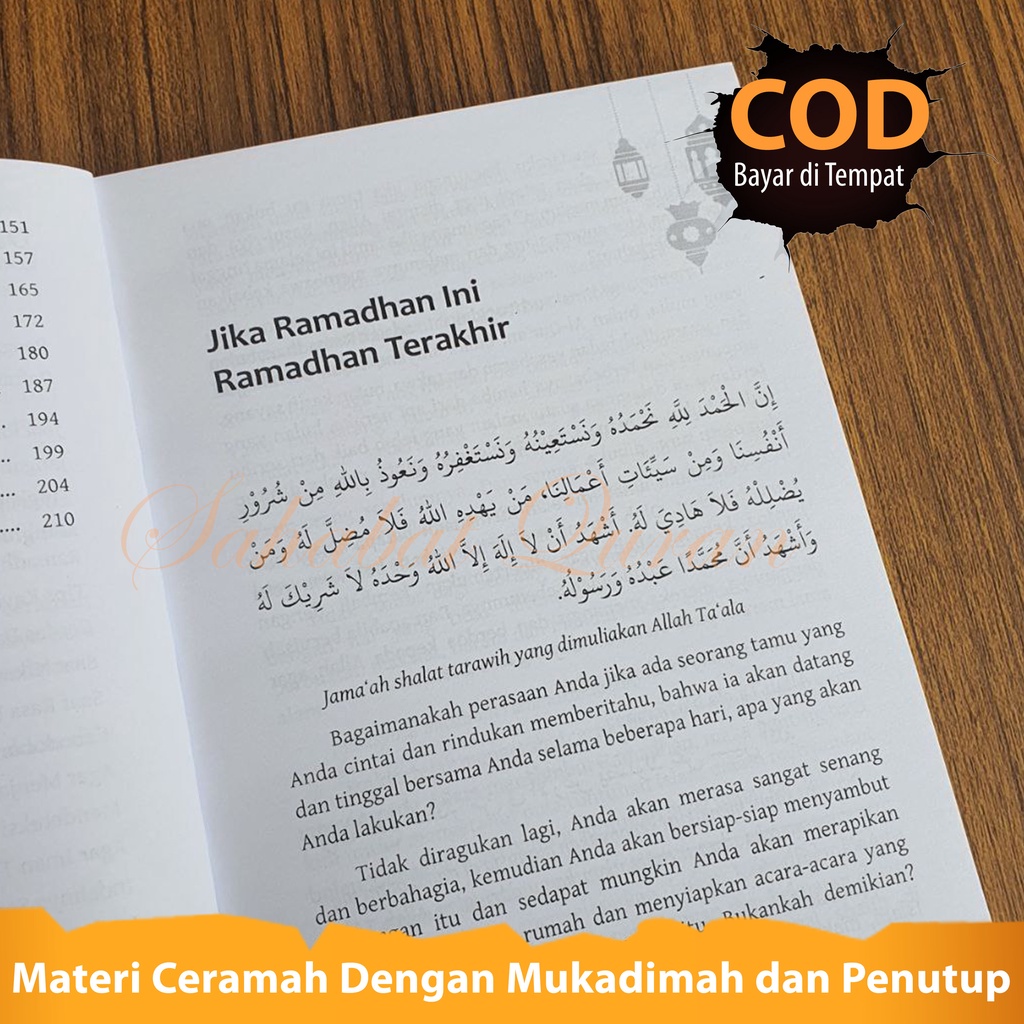 COD
Bayar di Tempat
151
157
165
172
180
187
. 194
.. 199
... 204
.... 210
Jika Ramadhan Ini
Ramadhan Terakhir
إِنَّ الْحَمْدَ لِلَّهِ نَحْمَدُهُ وَنَسْتَعِيْنُهُ وَنَسْتَغْفِرُهُ وَنَعُوذُ بِاللهِ مِنْ شُرُوْرِ
أَنْفُسِنَا وَمِنْ سَيِّئَاتِ أَعْمَالِنَا، مَنْ يَهْدِهِ اللهُ فَلَا مُضِلَّ لَهُ وَمَنْ
يُضْلِلْهُ فَلَا هَادِيَ لَهُ. أَشْهَدُ أَنْ لَا إِلَهَ إِلَّا اللهُ وَحْدَهُ لَا شَرِيْكَ لَهُ
وَأَشْهَدُ أَنَّ مُحَمَّدًا عَبْدُهُ وَرَسُوْلُهُ.
Sahabat Quran
Jama'ah shalat tarawih yang dimuliakan Allah Ta'ala
Bagaimanakah perasaan Anda jika ada seorang tamu yang
Anda cintai dan rindukan memberitahu, bahwa ia akan datang
dan tinggal bersama Anda selama beberapa hari, apa yang akan
Anda lakukan?
Tidak diragukan lagi, Anda akan merasa sangat senang
dan berbahagia, kemudian Anda akan bersiap-siap menyambut
itu dan sedapat mungkin Anda akan merapikan
rumah dan menyiapkan acara-acara yang
Bukankah demikian?
Materi Ceramah Dengan Mukadimah dan Penutup